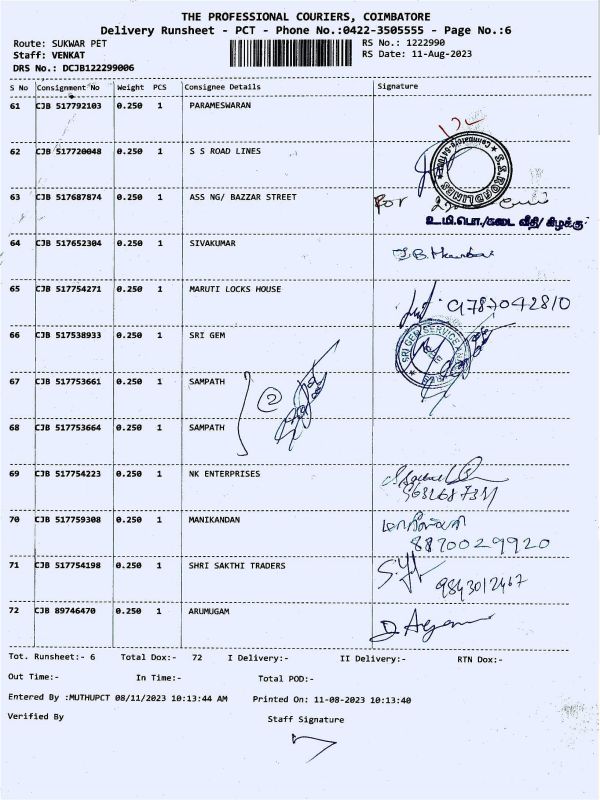 THE PROFESSIONAL COURIERS, COIMBATORE
Delivery Runsheet - PCT - Phone No.:0422-3505555 - Page No.:6
Route: SUKWAR PET
RS No.: 1222990
Staff: VENKAT
RS Date: 11-Aug-2023
DRS No.: DCJB122299006
S No Consignment No Weight PCS Consignee Details Signature
61 CJB 517792103 0.250 1 PARAMESWARAN
62 CJB 517720048 0.250 1 S S ROAD LINES
S.S.ROADLINES
63 CJB 517687874 0.250 1 ASS NG/ BAZZAR STREET
For
உ.மி.பொ./கடை வீதி/ கிழக்கு
64 CJB 517652304 0.250 1 SIVAKUMAR
65 CJB 517754271 0.250 1 MARUTI LOCKS HOUSE
9787042810
66 CJB 517538933 0.250 1 SRI GEM
SRI GEM SERVICE
67 CJB 517753661 0.250 1 SAMPATH
2
68 CJB 517753664 0.250 1 SAMPATH
69 CJB 517754223 0.250 1 NK ENTERPRISES
70 CJB 517759308 0.250 1 MANIKANDAN
8870029920
71 CJB 517754198 0.250 1 SHRI SAKTHI TRADERS
9843012467
72 CJB 89746470 0.250 1 ARUMUGAM
Tot. Runsheet:- 6 Total Dox:- 72 I Delivery:- II Delivery:- RTN Dox:-
Out Time:- In Time:- Total POD:-
Entered By :MUTHUPCT 08/11/2023 10:13:44 AM Printed On: 11-08-2023 10:13:40
Verified By Staff Signature